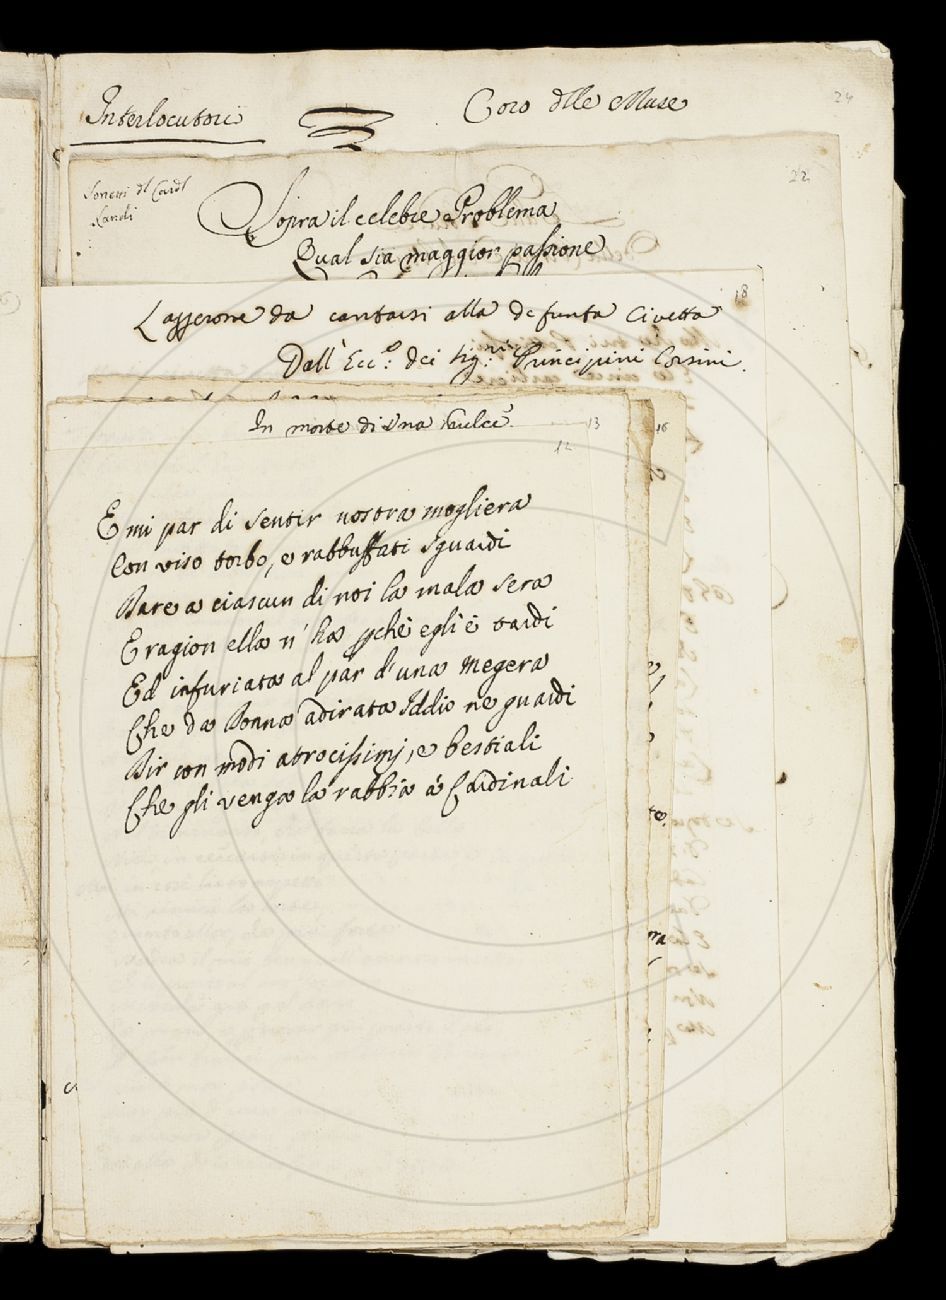 Interlocutori
Coro dlle Muse
24
22
Sonetti dl Cardl
Landi
Sopra il celebre Problema
Qual sia maggior passione
18
Lazzerone da cantarsi alla defunta Civetta
Dall' Ecc.o: dei Sig.ri Principini Corsini.
In morte di Una
13
16
12
E mi par di sentir nostra mogliera
Con viso torbo, e rabbuffati sguardi
Dare a ciascun di noi la mala sera
E ragion ella n' ha pchè egli è tardi
Ed infuriata al par d'una Megera
Che da Donna adirata Iddio ne guardi
Dir con modi atrocissimi, e bestiali
Che gli venga la rabbia á Cardinali